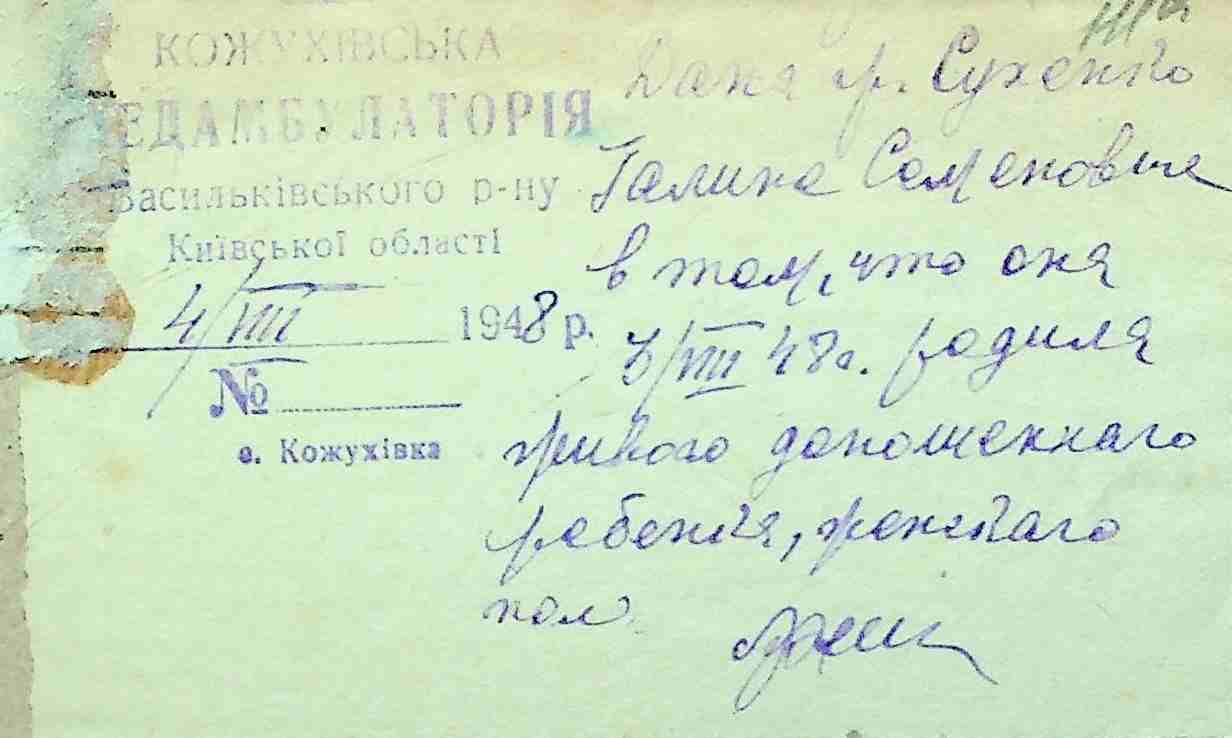 КОЖУХІВСЬКА
ЕДАМБУЛАТОРІЯ
Васильківського р-ну
Київської області
4/VIII 1948 р.
№
с. Кожухівка
Дана гр. Сухенко
Галине Семеновне
в том, что она
3/VIII 48 г. родила
живого доношеннаго
ребенка, женскаго
пол